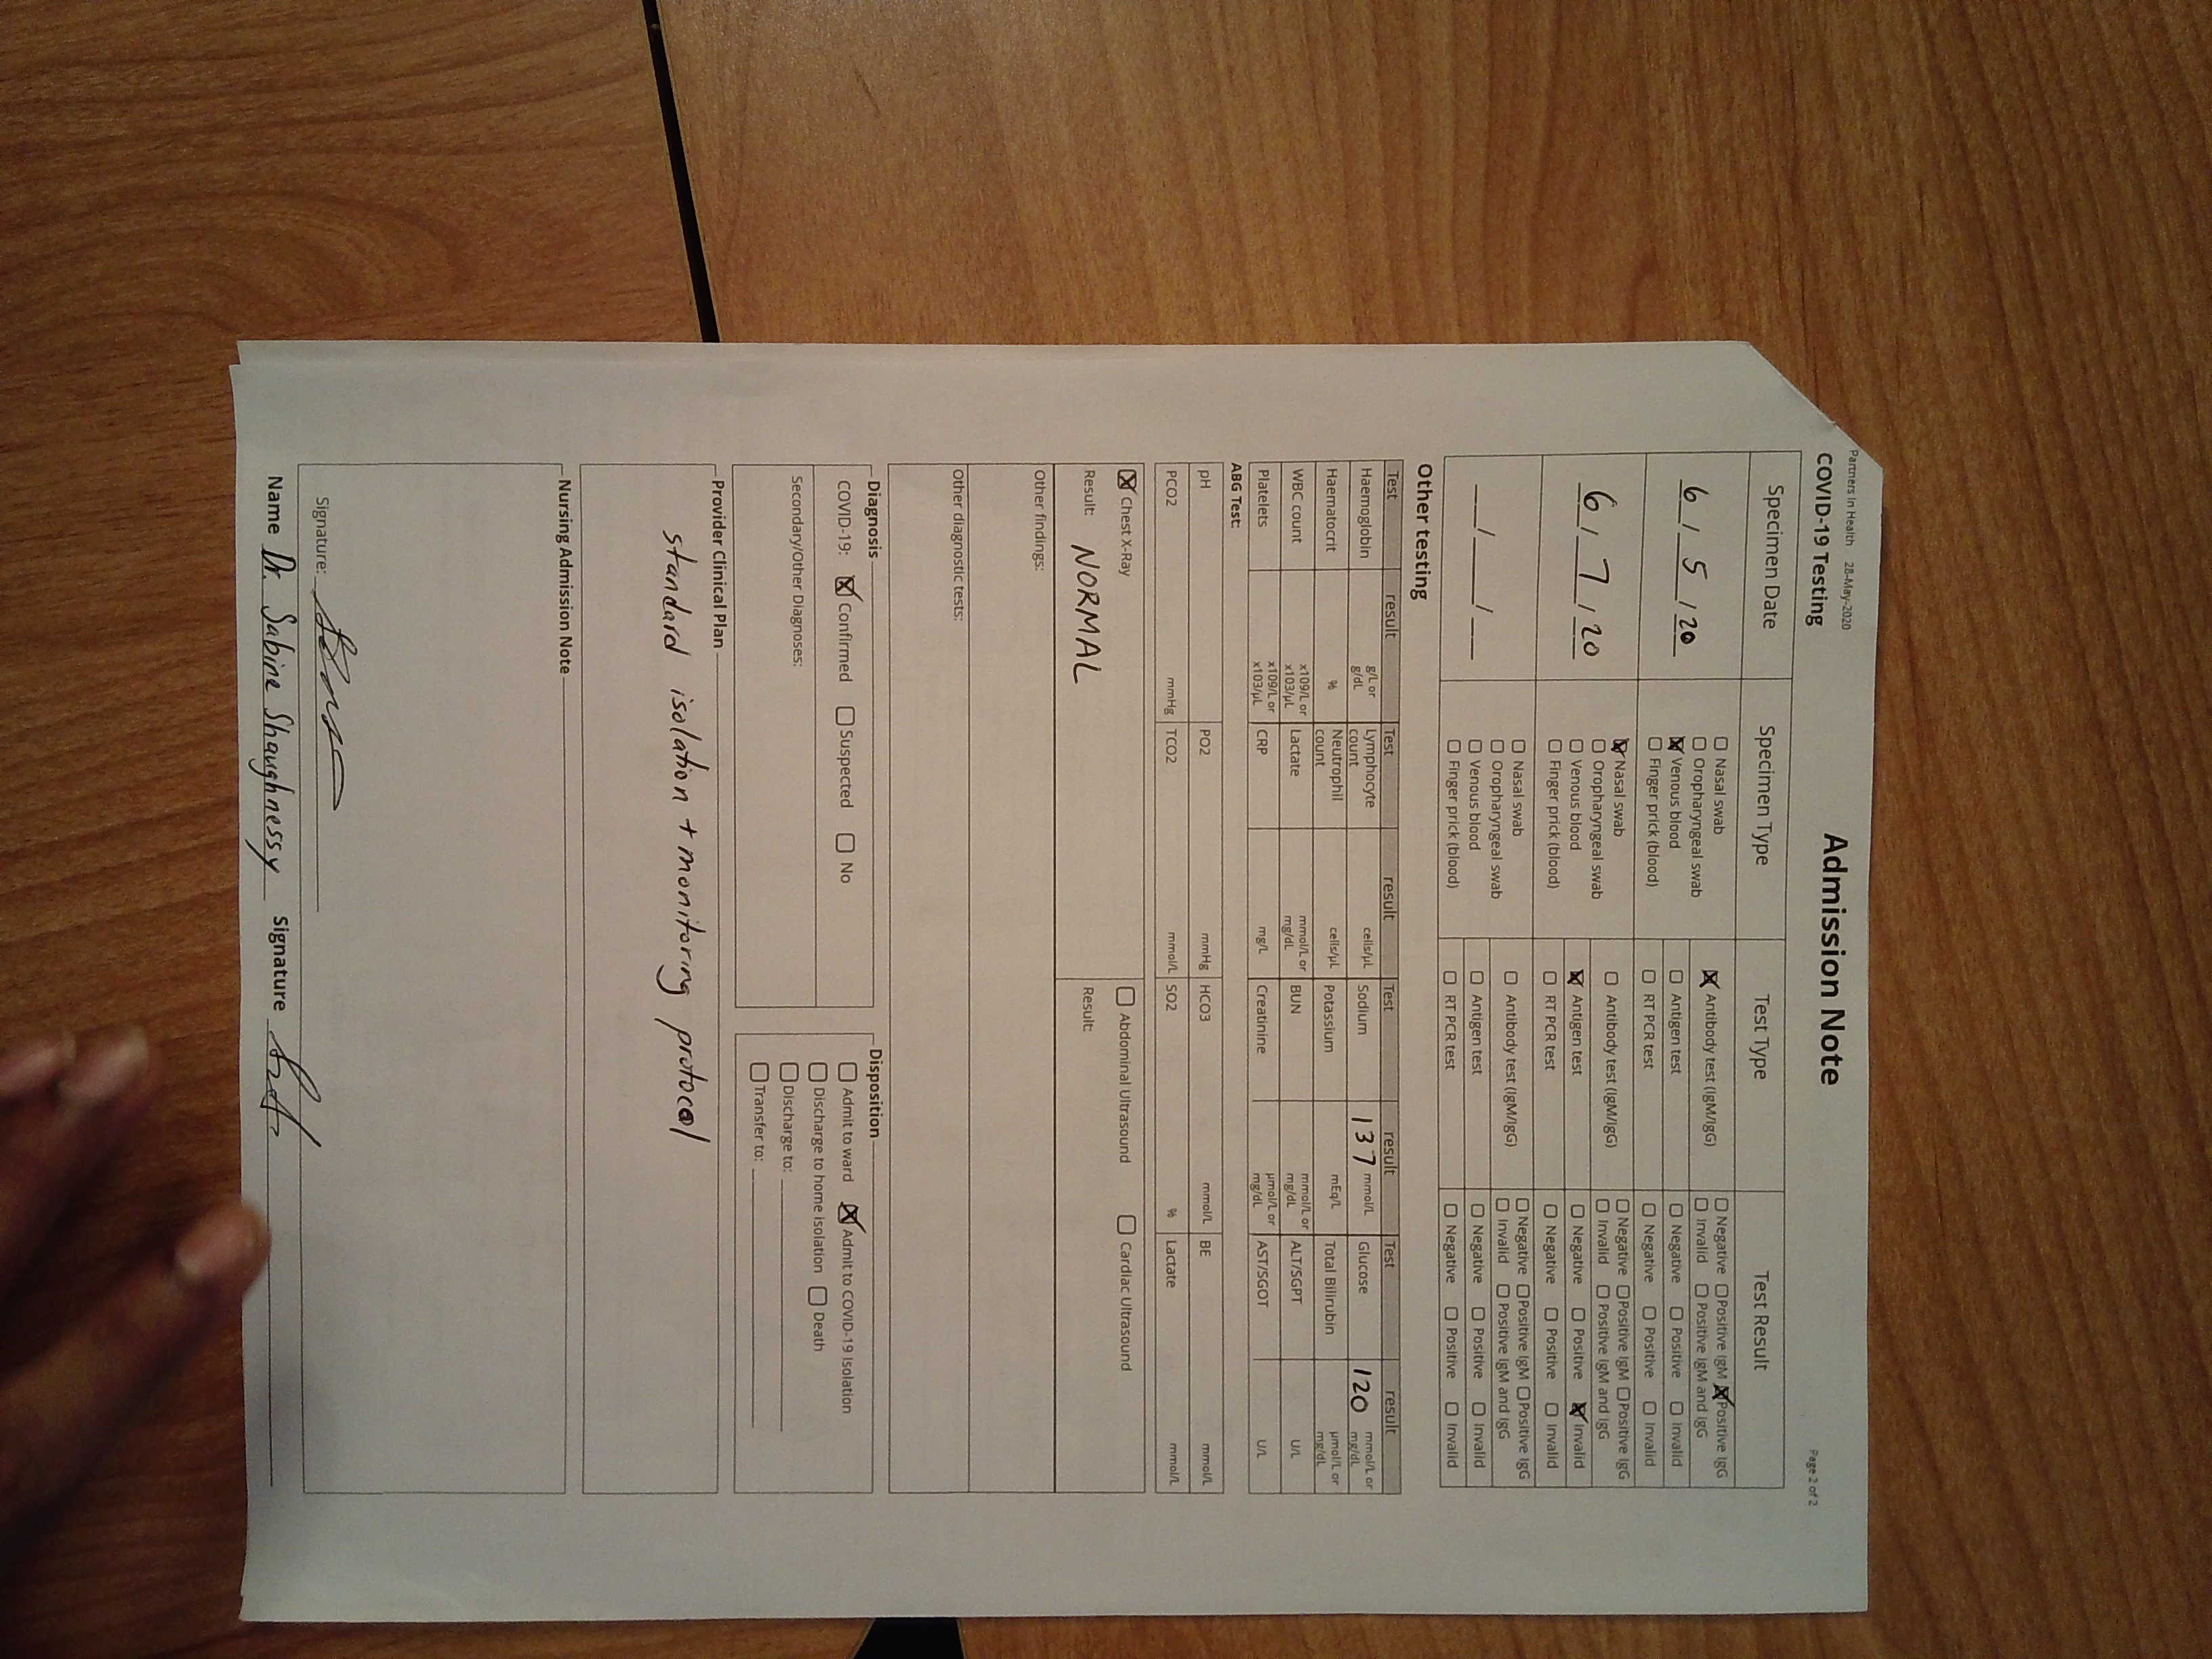 Partners In Health 28-May-2020
Admission Note
Page 2 of 2
COVID-19 Testing
Specimen Date Specimen Type Test Type Test Result
6 / 5 / 20
☐ Nasal swab
☐ Oropharyngeal swab
☒ Venous blood
☐ Finger prick (blood)
☒ Antibody test (IgM/IgG)
☐ Negative ☐ Positive IgM ☒ Positive IgG
☐ Invalid ☐ Positive IgM and IgG
☐ Antigen test ☐ Negative ☐ Positive ☐ Invalid
☐ RT PCR test ☐ Negative ☐ Positive ☐ Invalid
6 / 7 / 20
☒ Nasal swab
☐ Oropharyngeal swab
☐ Venous blood
☐ Finger prick (blood)
☐ Antibody test (IgM/IgG)
☐ Negative ☐ Positive IgM ☐ Positive IgG
☐ Invalid ☐ Positive IgM and IgG
☒ Antigen test ☐ Negative ☐ Positive ☒ Invalid
☐ RT PCR test ☐ Negative ☐ Positive ☐ Invalid
___/___/___
☐ Nasal swab
☐ Oropharyngeal swab
☐ Venous blood
☐ Finger prick (blood)
☐ Antibody test (IgM/IgG)
☐ Negative ☐ Positive IgM ☐ Positive IgG
☐ Invalid ☐ Positive IgM and IgG
☐ Antigen test ☐ Negative ☐ Positive ☐ Invalid
☐ RT PCR test ☐ Negative ☐ Positive ☐ Invalid
Other testing
Test result Test result Test result Test result
Haemoglobin g/L or g/dL Lymphocyte count cells/µL Sodium 137 mmol/L Glucose 120 mmol/L or mg/dL
Haematocrit % Neutrophil count cells/µL Potassium mEq/L Total Bilirubin µmol/L or mg/dL
WBC count x109/L or x103/µL Lactate mmol/L or mg/dL BUN mmol/L or mg/dL ALT/SGPT U/L
Platelets x109/L or x103/µL CRP mg/L Creatinine µmol/L or mg/dL AST/SGOT U/L
ABG Test:
pH PO2 mmHg HCO3 mmol/L BE mmol/L
PCO2 mmHg TCO2 mmol/L SO2 % Lactate mmol/L
☒ Chest X-Ray ☐ Abdominal Ultrasound ☐ Cardiac Ultrasound
Result: NORMAL Result:
Other findings:
Other diagnostic tests:
Diagnosis
COVID-19: ☒ Confirmed ☐ Suspected ☐ No
Secondary/Other Diagnoses:
Disposition
☐ Admit to ward ☒ Admit to COVID-19 Isolation
☐ Discharge to home isolation ☐ Death
☐ Discharge to:
☐ Transfer to:
Provider Clinical Plan
standard isolation + monitoring protocol
Nursing Admission Note
Signature:
Name Dr. Sabine Shaughnessy Signature